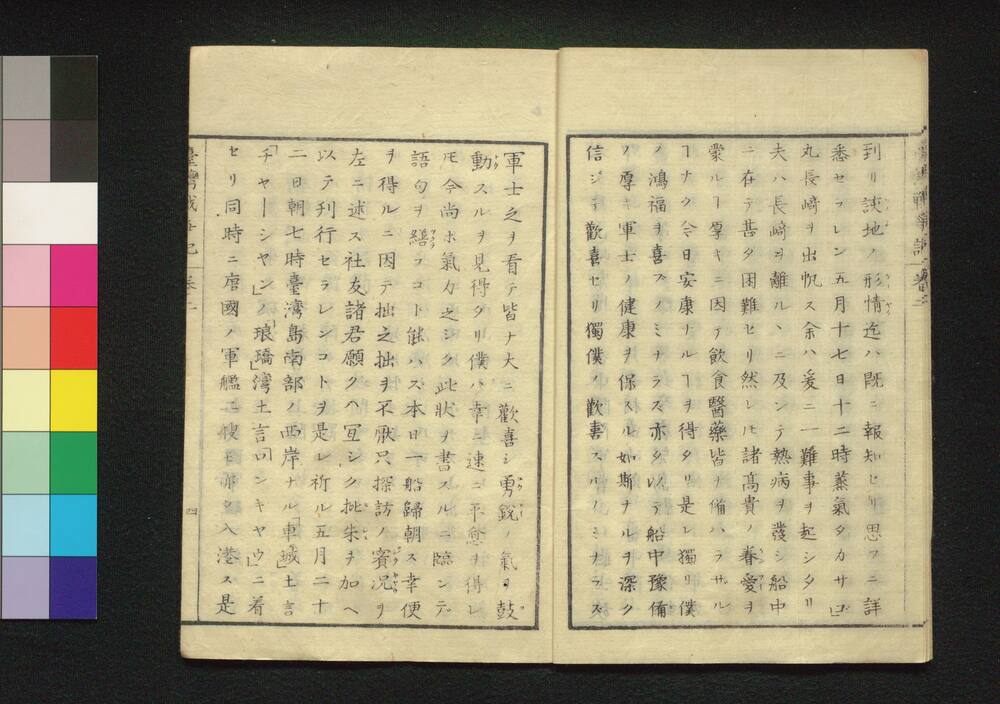 到リ該地ノ形情迄ハ既ニ報知セリ思フニ詳
悉セラレン五月十七日十二時蒸氣タカサゴ
丸長﨑ヲ出帆ス余ハ爰ニ一難事ヲ起シタリ
夫ハ長﨑ヲ離ルヽニ及ンテ熱病ヲ發シ船中
ニ在テ甚タ困難セリ然レ𪜈諸高貴ノ眷愛ヲ
蒙ルヿ厚キニ因テ飲食醫藥皆ナ備ハラサル
ヿナク今日安康ナルヿヲ得タリ是レ獨リ僕
ノ鴻福ヲ喜フノミナラス亦タ以テ船中豫備
ノ厚キ軍士ノ健康ヲ保スル如斯ナルヲ深ク
信シテ歡喜セリ獨僕ノ歡喜スルノミナラス
軍士之ヲ看テ皆ナ大ニ歡喜シ勇鋭ノ氣ヲ鼓
動スルヲ見得タリ僕ハ幸ニ速ニ平愈ヲ得レ
𪜈今尚ホ氣力乏シク此狀ヲ書スルニ臨ンデ
語句ヲ繕フコト能ハス本日一船歸朝ス幸便
ヲ得ルニ因テ拙之拙ヲ不厭只探訪ノ實况ヲ
左ニ述ス社友諸君願クハ冝シク批朱ヲ加ヘ
以テ刊行セラレンコトヲ是レ祈ル五月二十
二日朝七時臺灣島南部ノ西岸ナル「車城」土言
「チヤーシヤン」ノ「琅𤩝灣」土言「ロンキヤウ」ニ着
セリ同時ニ唐國ノ軍艦二艘モ亦タ入港ス是
四